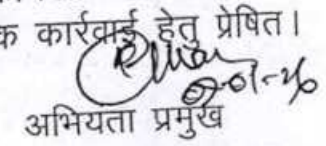 क कार्रवाई हेतु प्रेषित।
अभियता प्रमुख